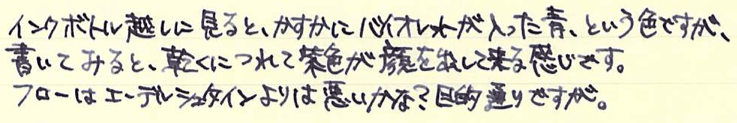 インクボトル越しに見ると、かすかにバイオレットが入った青、という色ですが、
書いてみると、乾くにつれて紫色が顔を出して来る感じです。
フローはエーデルシュタインよりは悪いかな？目的通りですが。